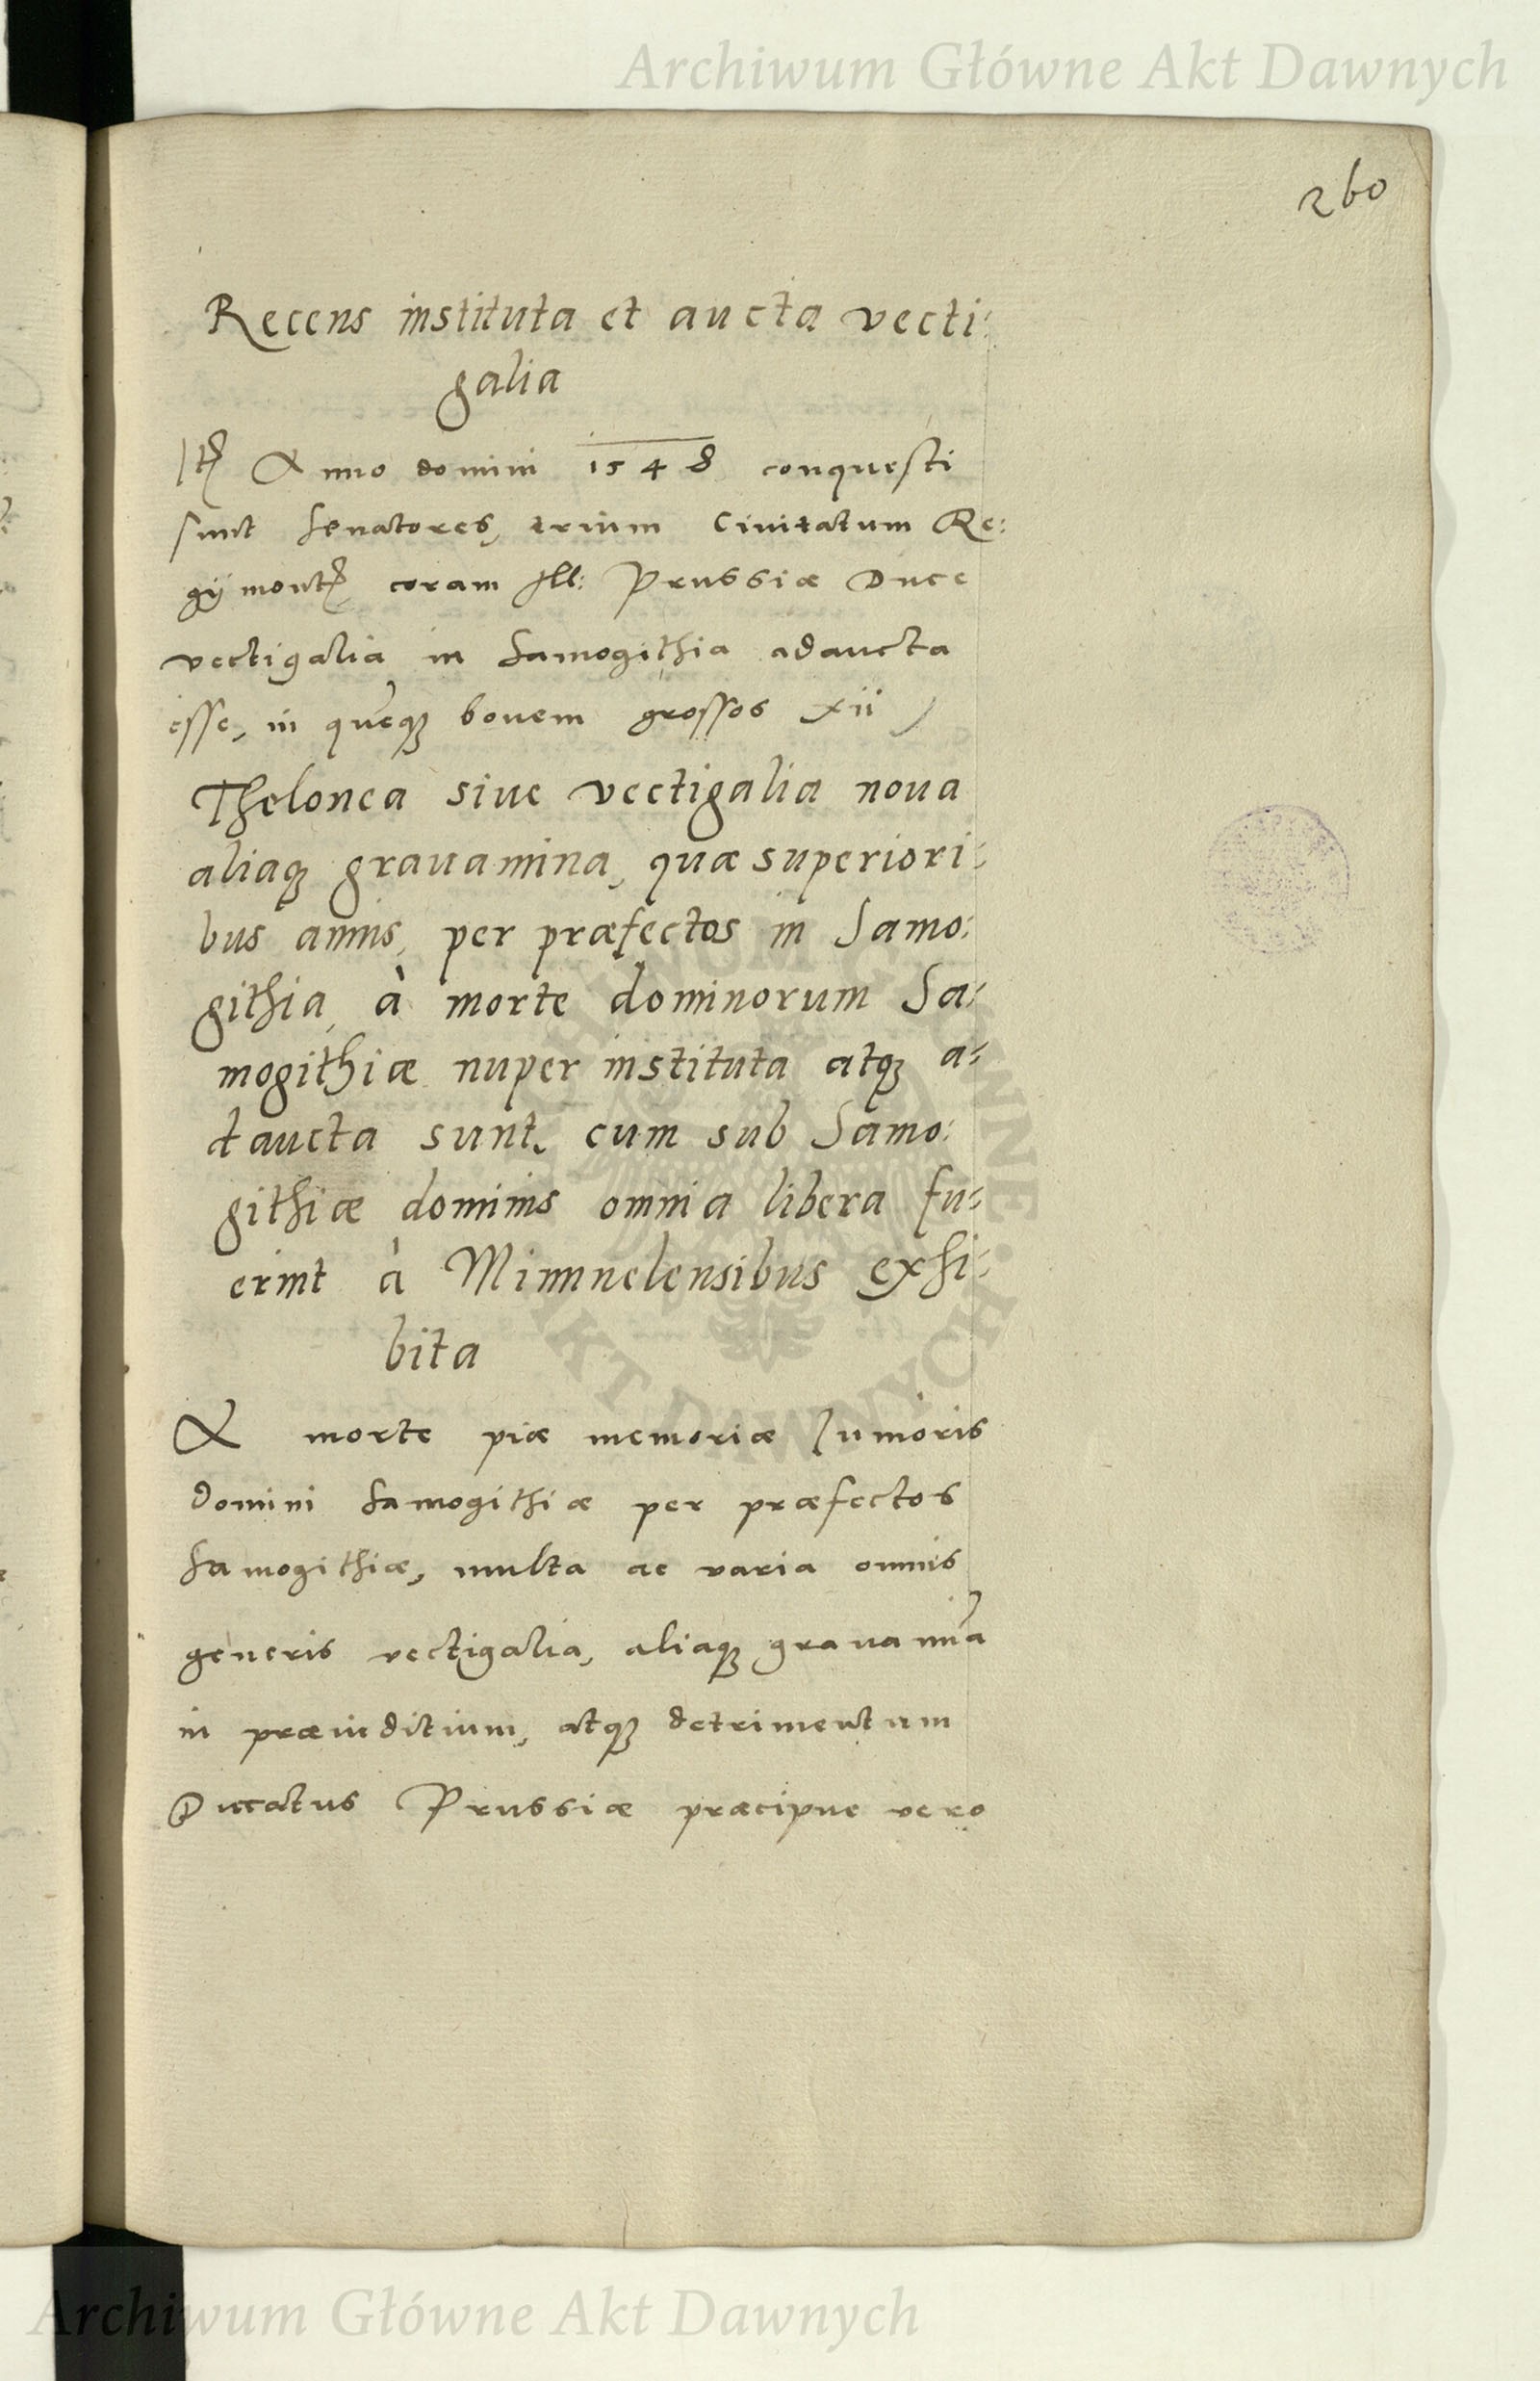 Archiwum Główne Akt Dawnych
260
Recens instituta et aucta vecti:
galia
Anno domini 1548 conquesti
sunt Senatores, trium Ciuitatum Re:
gij mont coram Ill: Prussiæ Duce
vectigalia in Samogithia adaucta
esse, in quẽqꝫ bouem grossos xii
Thelonea siue vectigalia noua
aliaqꝫ grauamina, quæ superiori:
bus annis, per præfectos in Samo:
githia, à morte dominorum Sa:
mogithiæ nuper instituta atqꝫ a:
daucta sunt, cum sub Samo:
githiæ dominis omnia libera fu:
erint à Mimmelensibus exhi:
bita
A morte piæ memoriæ Iunioris
domini Samogithiæ per præfectos
Samogithiæ, multa ac varia omnis
generis vectigalia, aliaqꝫ grauamĩa
in præiuditium, atqꝫ detrimentum
Ducatus Prussiæ præcipue vero
ARCHIWUM GŁÓWNE AKT DAWNYCH
Archiwum Główne Akt Dawnych